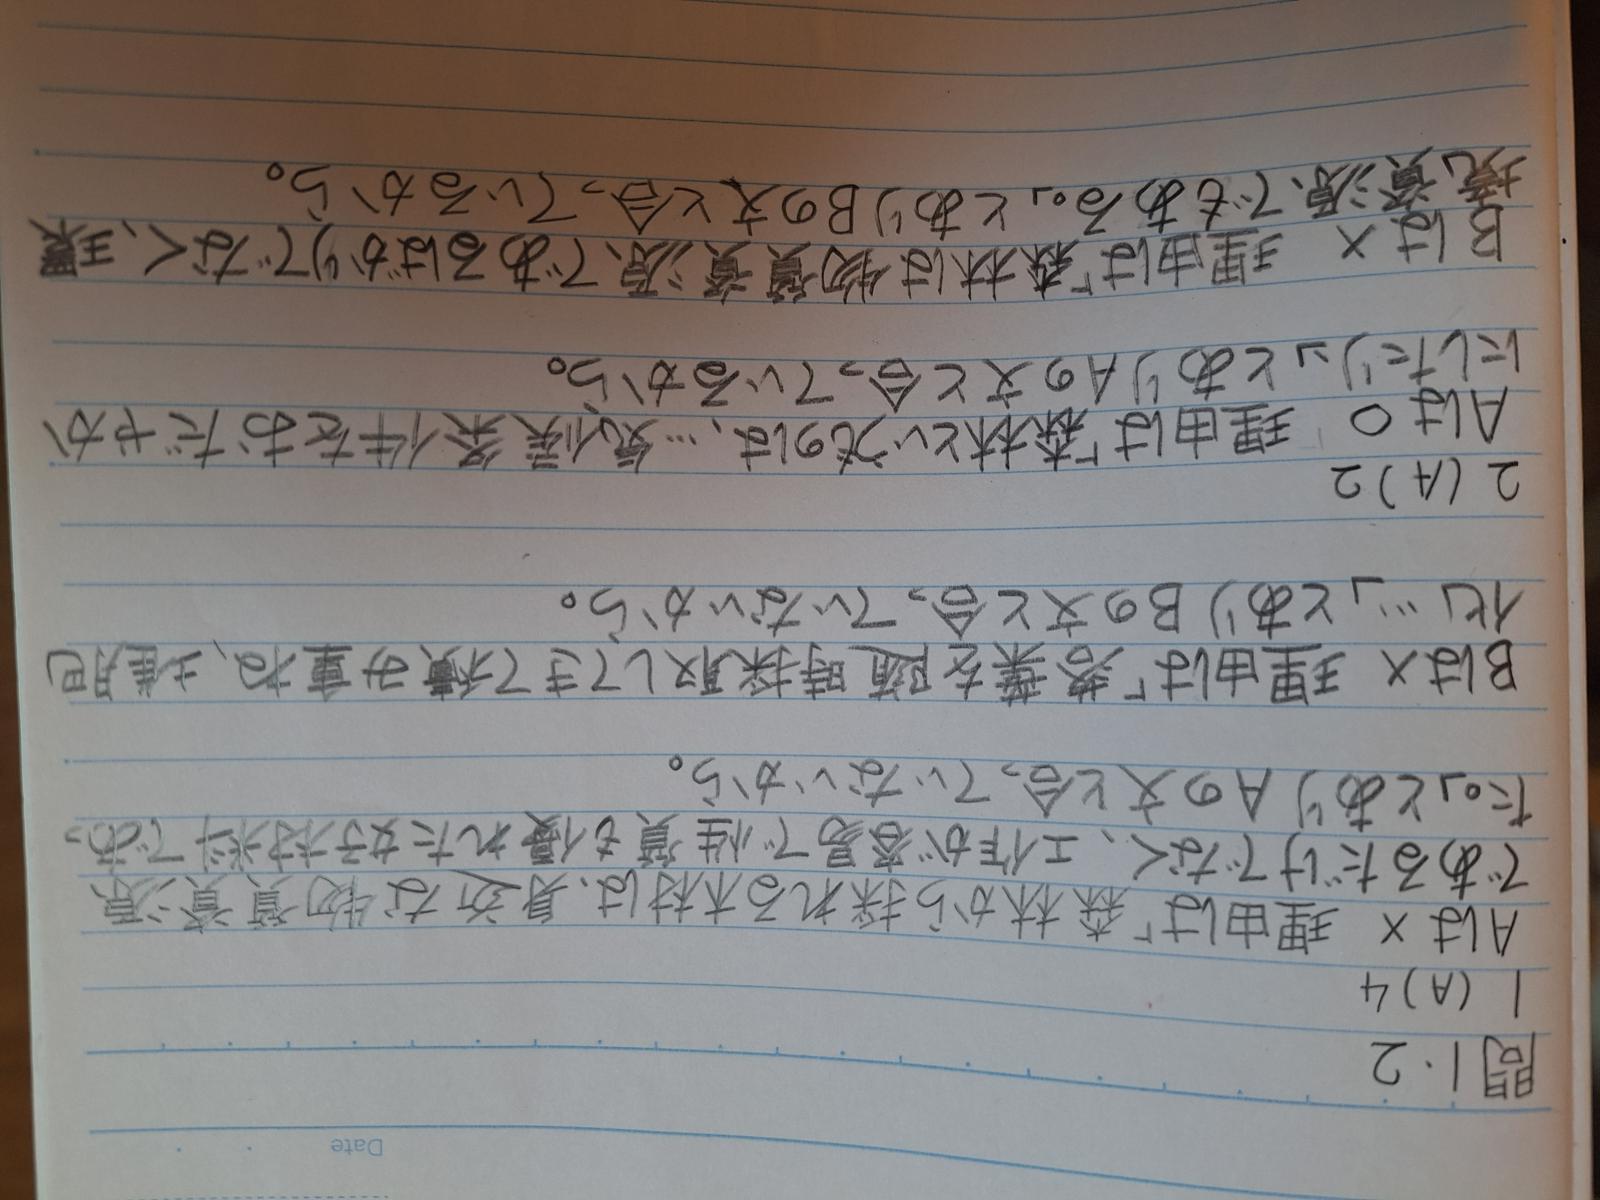 Date
問1・2
1 (A) 4
Aは× 理由は「森林から採れる木材は、身近な物質資源
であるだけでなく、工作が容易で性質も優れた好材料であっ
た。」とありAの文と合っていないから。
Bは× 理由は「落葉を随時採取してきて積み重ね、堆肥
化し…」とありBの文と合っていないから。
2 (A) 2
Aは○ 理由は「森林というものは、…気候条件をおだやか
にしたり」とありAの文と合っているから。
Bは× 理由は「森林は物質資源であるばかりでなく、環
境資源でもある。」とありBの文と合っているから。